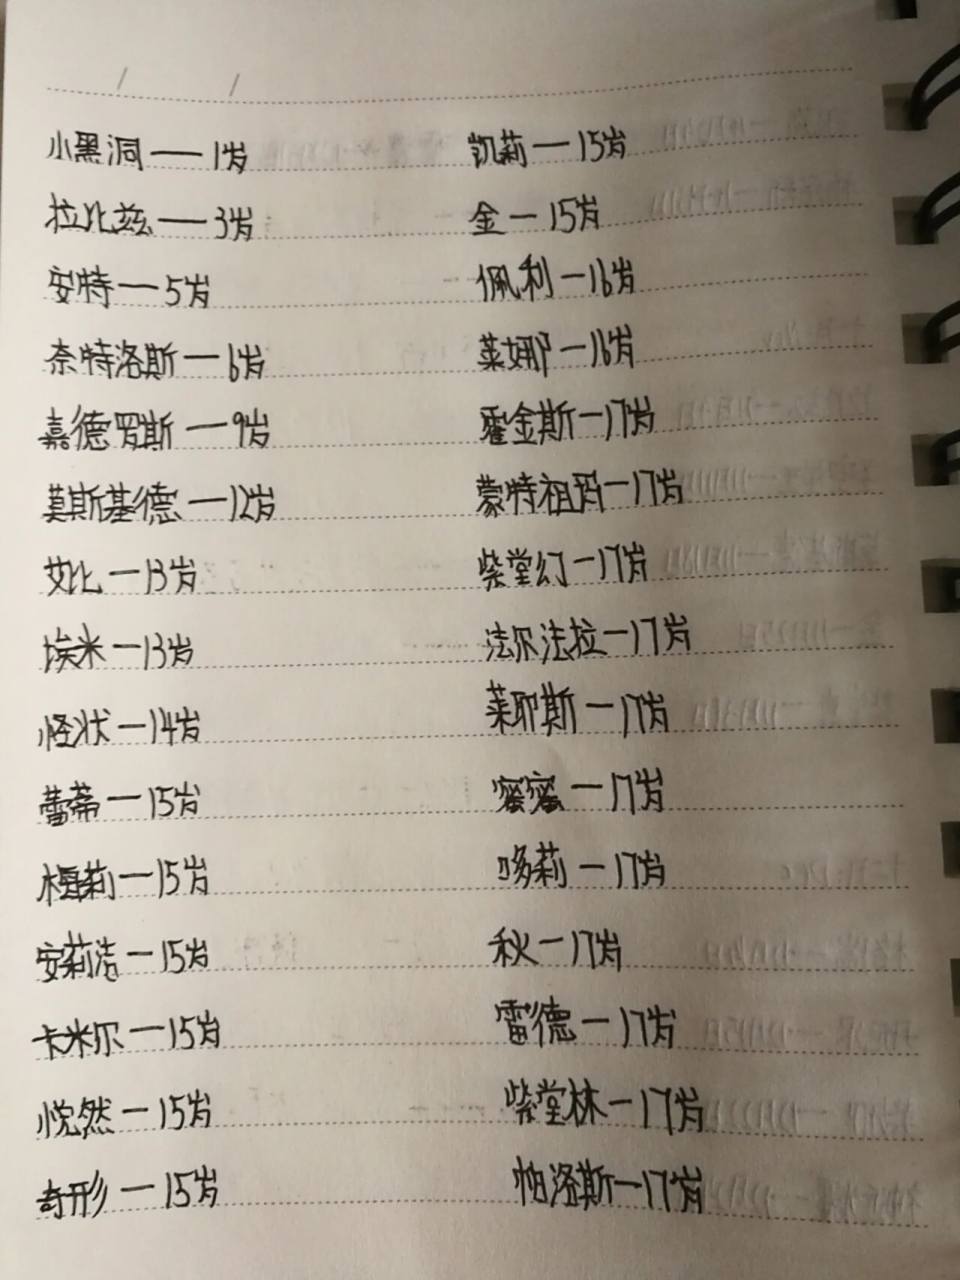 小黑洞——1岁
拉比兹——3岁
安特—5岁
奈特洛斯—6岁
嘉德罗斯—9岁
莫斯基德—12岁
艾比—13岁
埃米—13岁
怪状—14岁
蕾蒂—15岁
梅莉—15岁
安莉洁—15岁
卡米尔—15岁
悦然—15岁
奇形—15岁
凯莉—15岁
金—15岁
佩利—16岁
莱娜—16岁
霍金斯—17岁
蒙特祖玛—17岁
紫堂幻—17岁
法尔法拉—17岁
莱耶斯—17岁
蜜蜜—17岁
哆莉—17岁
秋—17岁
雷德—17岁
紫堂林—17岁
帕洛斯—17岁